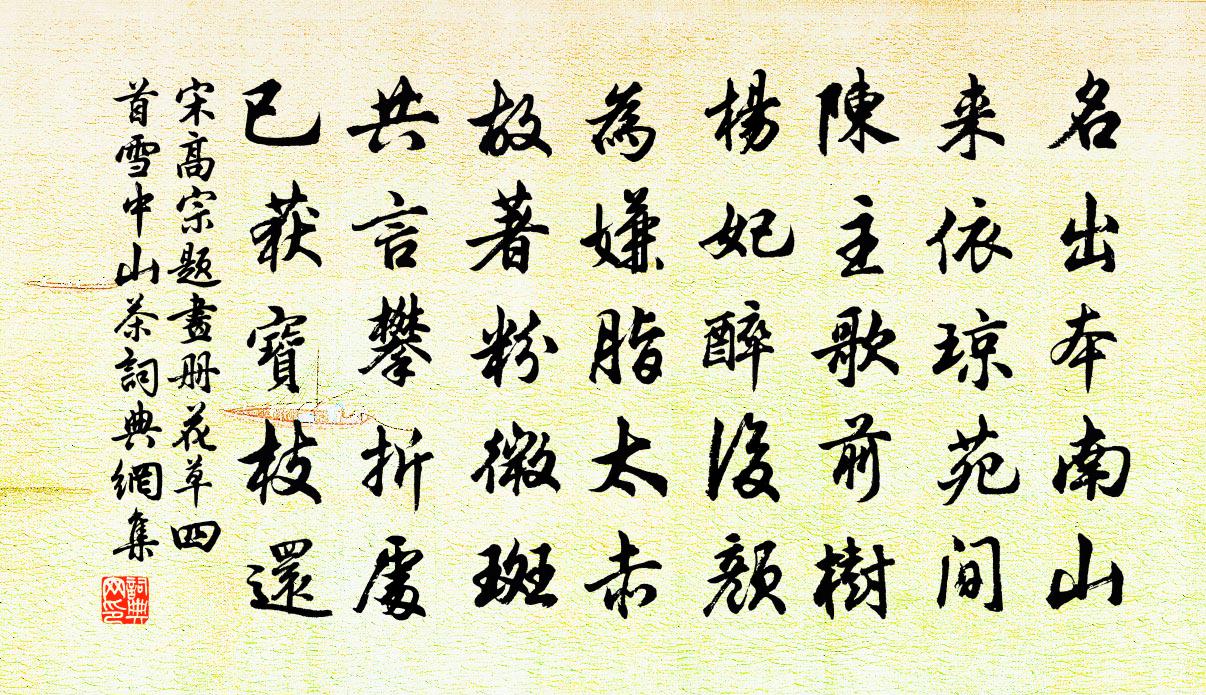 名出本南山
来依琼苑间
陳主歌前樹
楊妃醉後顔
為嫌脂太赤
故著粉微斑
共言攀折處
已获寶枝還
宋高宗題畫册花草四
首雪中山茶詞典網集
詞典网印